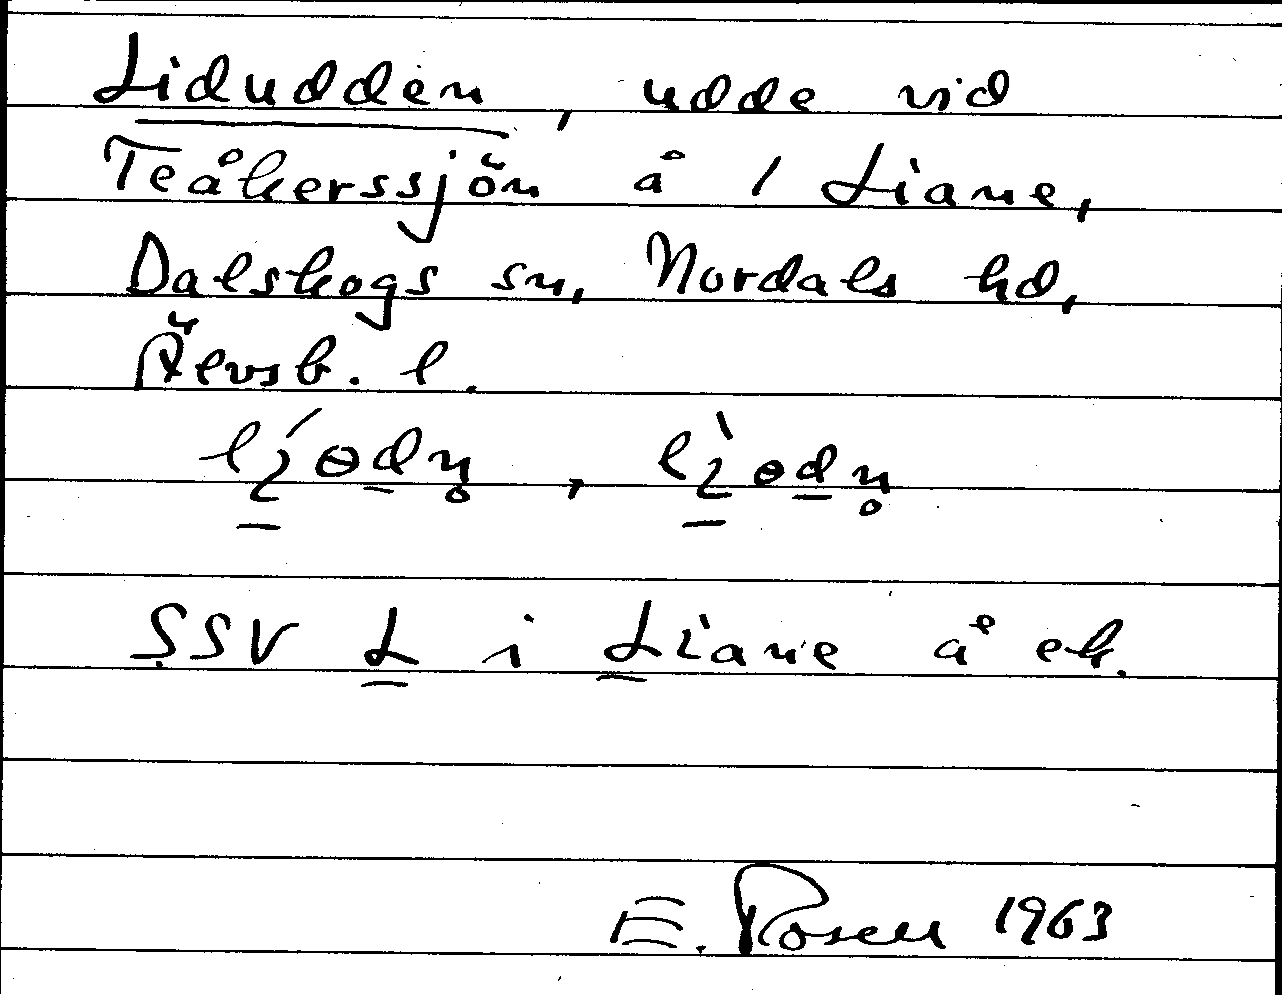 Lidudden, udde vid
Teåkerssjön å 1 Liane,
Dalskogs sn, Nordals hd,
Älvsb. l.
SSV L i Liane å ek.
E. Rosell 1963